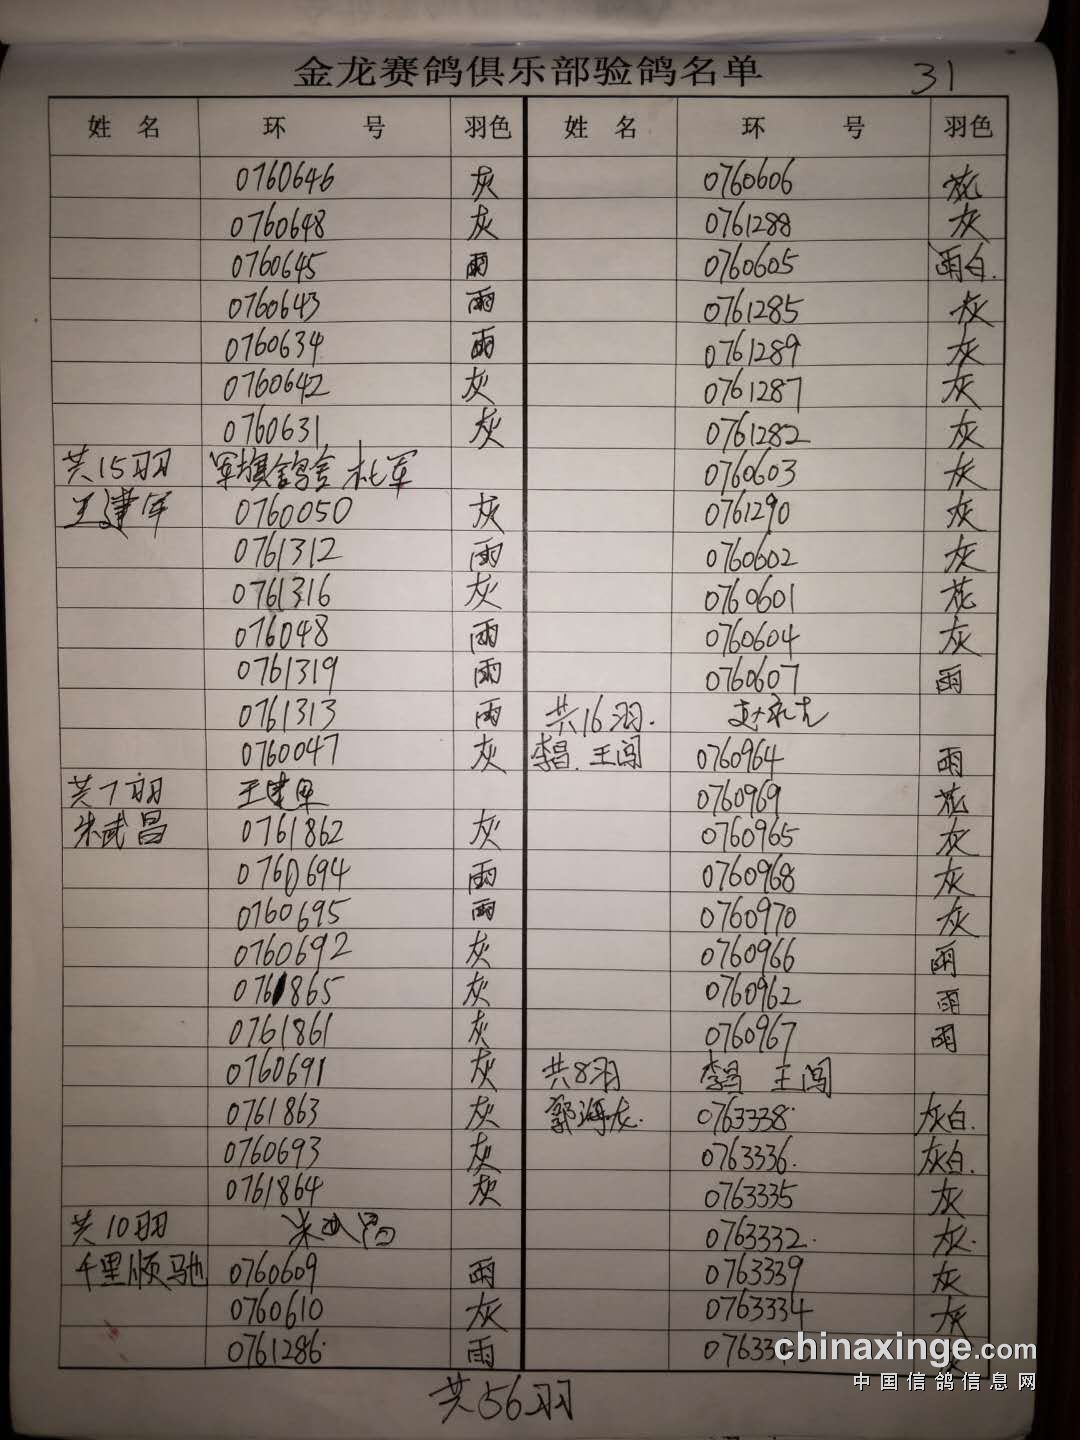 金龙赛鸽俱乐部验鸽名单 31
姓名 环号 羽色 姓名 环号 羽色
0760646 灰 0760606 花
0760648 灰 0761288 灰
0760645 雨 0760605 雨白.
0760643 雨 0761285 灰
0760634 雨 0761289 灰
0760642 灰 0761287 灰
0760631 灰 0761282 灰
共15羽 军旗鸽舍 杜军 0760603 灰
王建军 0760050 灰 0761290 灰
0761312 雨 0760602 灰
0761316 灰 0760601 花
076048 雨 0760604 灰
0761319 雨 0760607 雨
0761313 雨 共16羽.
0760047 灰 李昌 王闯 0760964 雨
共7羽 王建军 0760969 花
朱武昌 0761862 灰 0760965 灰
0760694 雨 0760968 灰
0760695 雨 0760970 灰
0760692 灰 0760966 雨
0761865 灰 0760962 雨
0761861 灰 0760967 雨
0760691 灰 共8羽 李昌 王闯
0761863 灰 郭海龙. 0763338 灰白.
0760693 灰 0763336. 灰白.
0761864 灰 0763335 灰
共10羽 朱武昌 0763332. 灰.
千里顺驰 0760609 雨 0763339 灰
0760610 灰 0763334 灰
0761286 雨
chinaxinge.com
中国信鸽信息网
共56羽